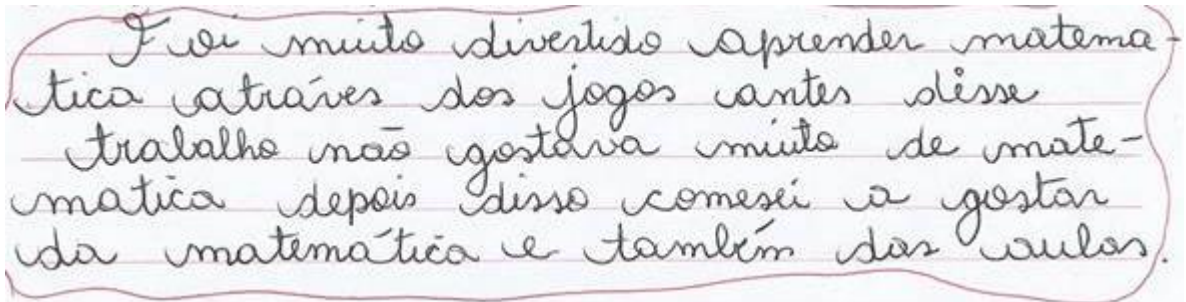 Foi muito divertido aprender matema-
tica atráves dos jogos antes disse
trabalho não gostava muito de mate-
matica depois disso comesei a gostar
da matemática e também das aulas.